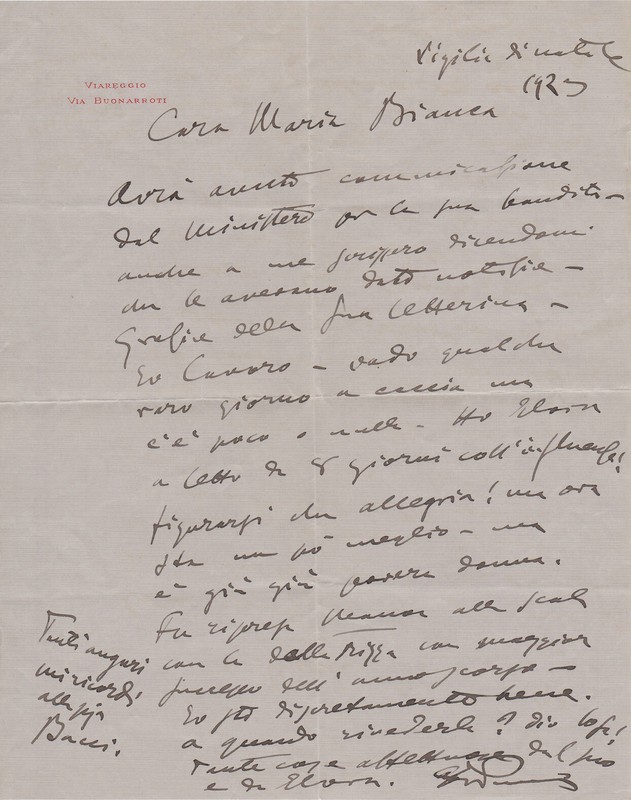 Vigilia di natale
1923
VIAREGGIO
VIA BUONARROTI
Cara Maria Bianca
Avrà avuto comunicazione
dal Ministero per la sua bandita -
anche a me scrissero dicendomi
che le avevano dato notizie -
Grazie della sua letterina -
Io lavoro - vado qualche
raro giorno a caccia ma
c'è poco o nulla - Ho Elvira
a letto da 8 giorni coll'influenza!
figurarsi che allegria! ma ora
sta un pò meglio - ma
è giù giù povera donna.
Fu ripresa Manon alla Scala
con la dalla Rizza con maggior
successo dell'anno scorso -
Io sto discretamente bene.
a quando rivederla? dio lo sa!
Tante cose affettuose dal suo
e da Elvira.
Tanti auguri
mi ricordi
alla
Bacci.